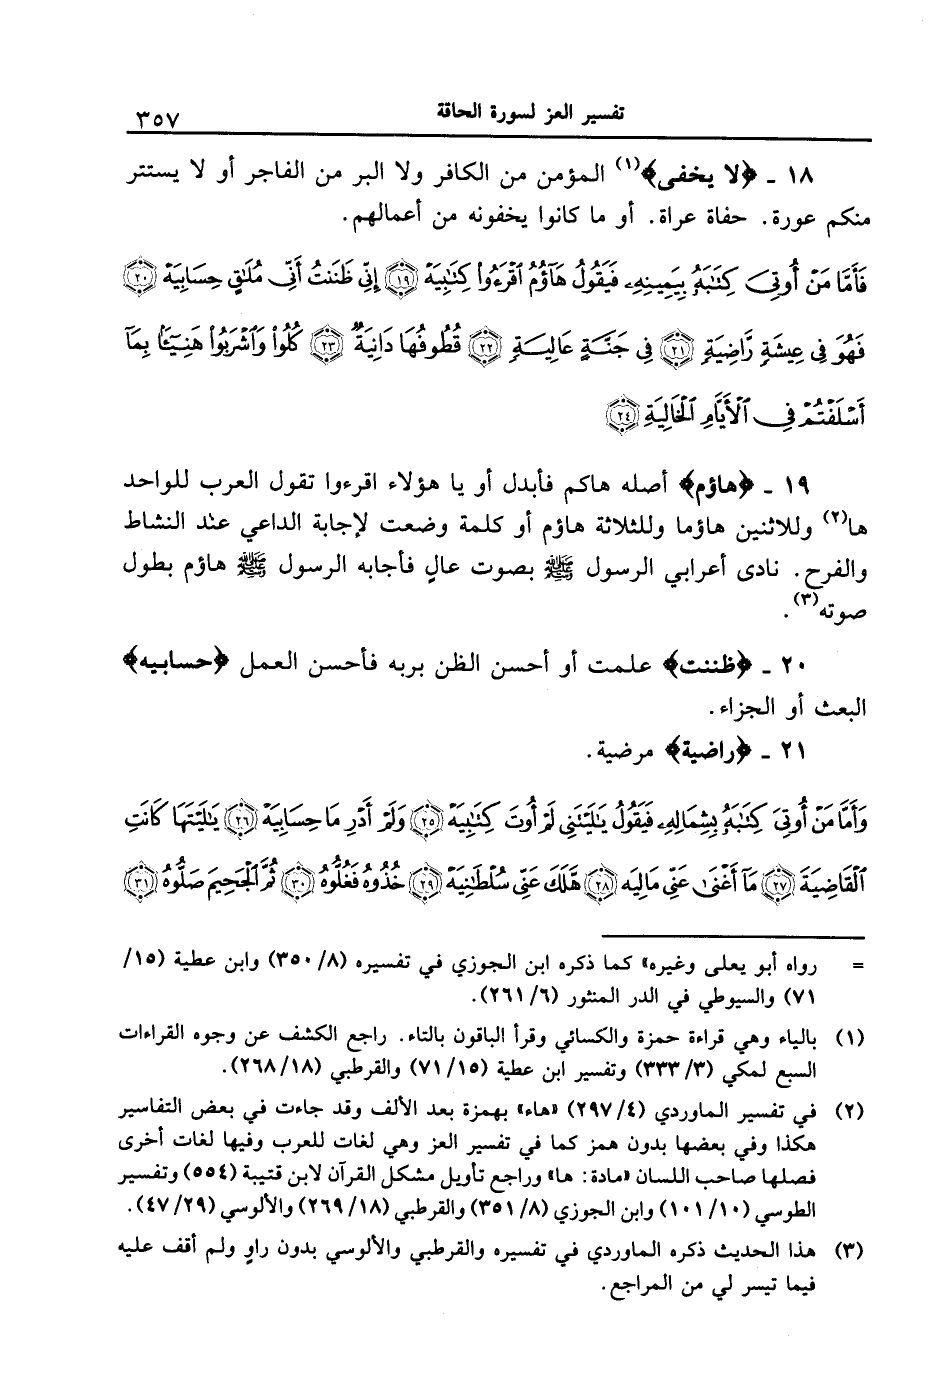 تفسير العز لسورة الحاقة
٣٥٧
١٨ ـ ﴿لا يخفى﴾(١) المؤمن من الكافر ولا البر من الفاجر أو لا يستتر
منكم عورة. حفاة عراة. أو ما كانوا يخفونه من أعمالهم.
فَأَمَّا مَنْ أُوتِىَ كِتَٰبَهُۥ بِيَمِينِهِۦ فَيَقُولُ هَآؤُمُ ٱقْرَءُوا۟ كِتَٰبِيَهْ ﴿١٩﴾ إِنِّى ظَنَنتُ أَنِّى مُلَٰقٍ حِسَابِيَهْ ﴿٢٠﴾
فَهُوَ فِى عِيشَةٍ رَّاضِيَةٍ ﴿٢١﴾ فِى جَنَّةٍ عَالِيَةٍ ﴿٢٢﴾ قُطُوفُهَا دَانِيَةٌ ﴿٢٣﴾ كُلُوا۟ وَٱشْرَبُوا۟ هَنِيٓـًٔۢا بِمَآ
أَسْلَفْتُمْ فِى ٱلْأَيَّامِ ٱلْخَالِيَةِ ﴿٢٤﴾
١٩ ـ ﴿هاؤم﴾ أصله هاكم فأبدل أو يا هؤلاء اقرءوا تقول العرب للواحد
ها(٢) وللاثنين هاؤما وللثلاثة هاؤم أو كلمة وضعت لإجابة الداعي عند النشاط
والفرح. نادى أعرابي الرسول ﷺ بصوت عالٍ فأجابه الرسول ﷺ هاؤم بطول
صوته(٣).
٢٠ ـ ﴿ظننت﴾ علمت أو أحسن الظن بربه فأحسن العمل ﴿حسابيه﴾
البعث أو الجزاء.
٢١ ـ ﴿راضية﴾ مرضية.
وَأَمَّا مَنْ أُوتِىَ كِتَٰبَهُۥ بِشِمَالِهِۦ فَيَقُولُ يَٰلَيْتَنِى لَمْ أُوتَ كِتَٰبِيَهْ ﴿٢٥﴾ وَلَمْ أَدْرِ مَا حِسَابِيَهْ ﴿٢٦﴾ يَٰلَيْتَهَا كَانَتِ
ٱلْقَاضِيَةَ ﴿٢٧﴾ مَآ أَغْنَىٰ عَنِّى مَالِيَهْ ﴿٢٨﴾ هَلَكَ عَنِّى سُلْطَٰنِيَهْ ﴿٢٩﴾ خُذُوهُ فَغُلُّوهُ ﴿٣٠﴾ ثُمَّ ٱلْجَحِيمَ صَلُّوهُ ﴿٣١﴾
= رواه أبو يعلى وغيره» كما ذكره ابن الجوزي في تفسيره (٣٥٠/٨) وابن عطية (١٥/
٧١) والسيوطي في الدر المنثور (٢٦١/٦).
(١) بالياء وهي قراءة حمزة والكسائي وقرأ الباقون بالتاء. راجع الكشف عن وجوه القراءات
السبع لمكي (٣٣٣/٣) وتفسير ابن عطية (٧١/١٥) والقرطبي (٢٦٨/١٨).
(٢) في تفسير الماوردي (٢٩٧/٤) «هاء» بهمزة بعد الألف وقد جاءت في بعض التفاسير
هكذا وفي بعضها بدون همز كما في تفسير العز وهي لغات للعرب وفيها لغات أخرى
فصلها صاحب اللسان «مادة: ها» وراجع تأويل مشكل القرآن لابن قتيبة (٥٥٤) وتفسير
الطوسي (١٠١/١٠) وابن الجوزي (٣٥١/٨) والقرطبي (٢٦٩/١٨) والألوسي (٤٧/٢٩).
(٣) هذا الحديث ذكره الماوردي في تفسيره والقرطبي والألوسي بدون راوٍ ولم أقف عليه
فيما تيسر لي من المراجع.